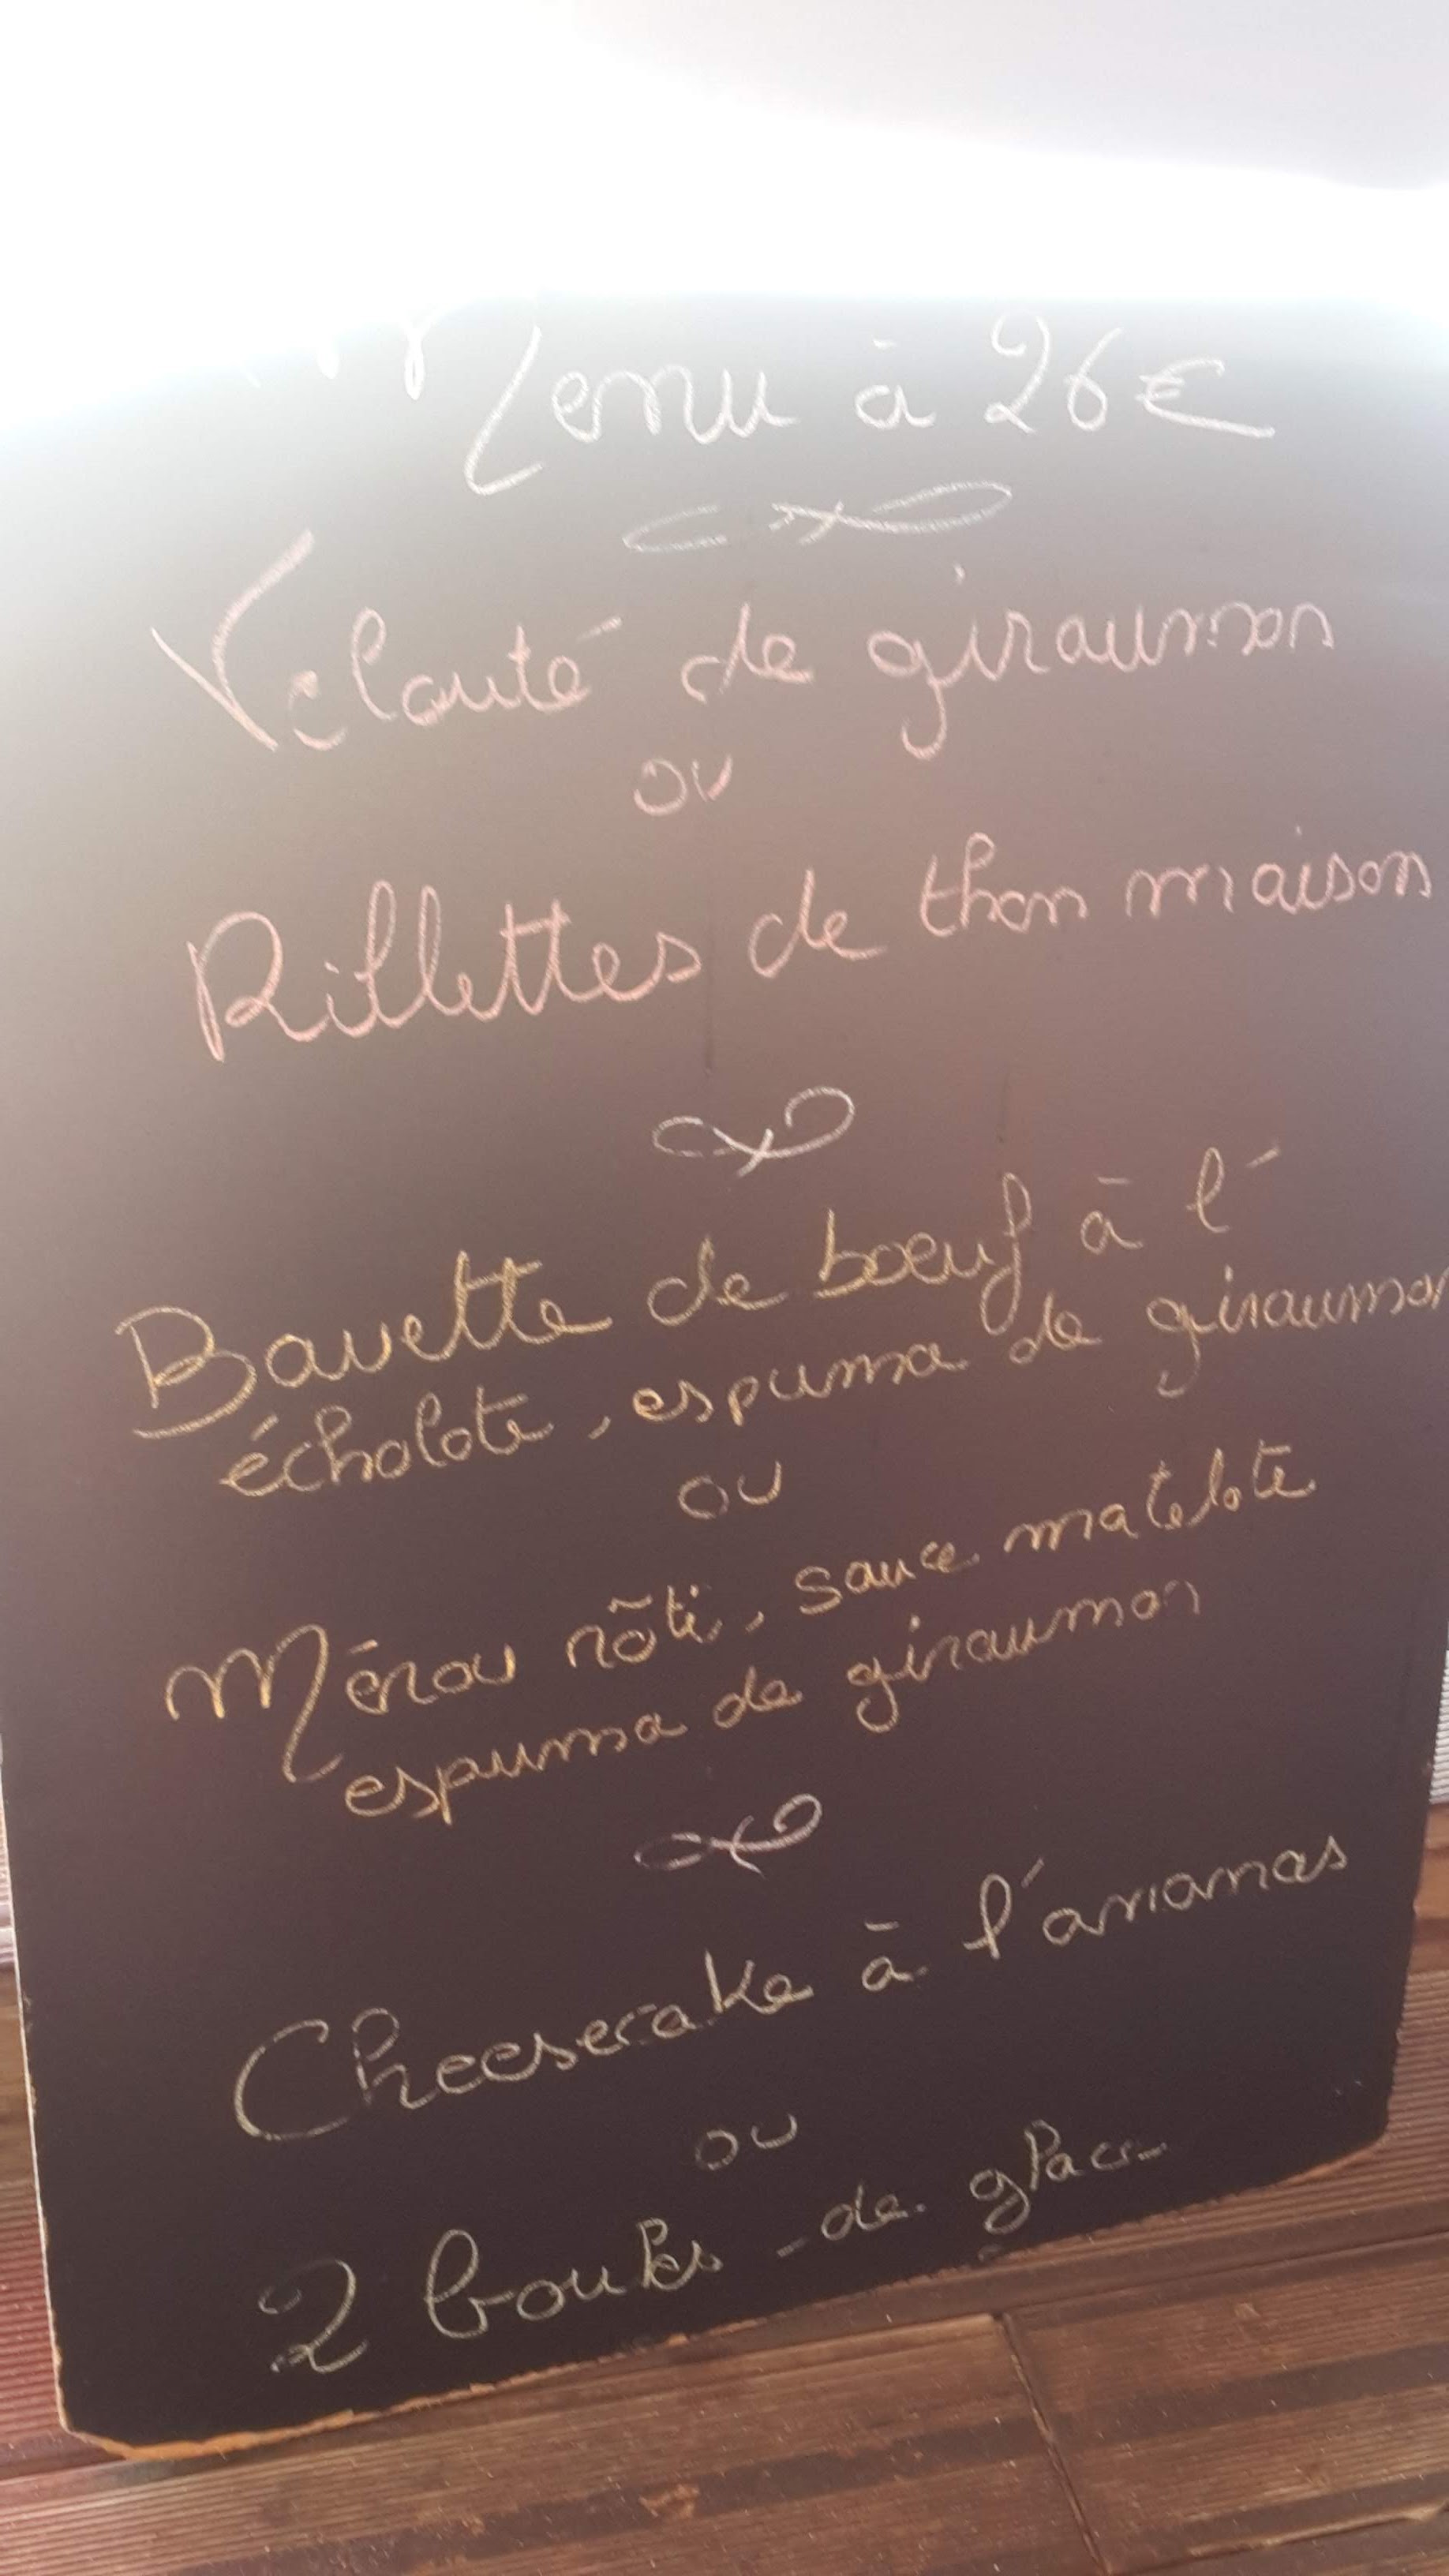 Menu à 26€
Velouté de giraumon
ou
Rillettes de thon maison
Bavette de boeuf à l'
échalote, espuma de giraumon
ou
Mérou rôti, sauce matelote
espuma de giraumon
Cheesecake à l'ananas
ou
2 boules de glace